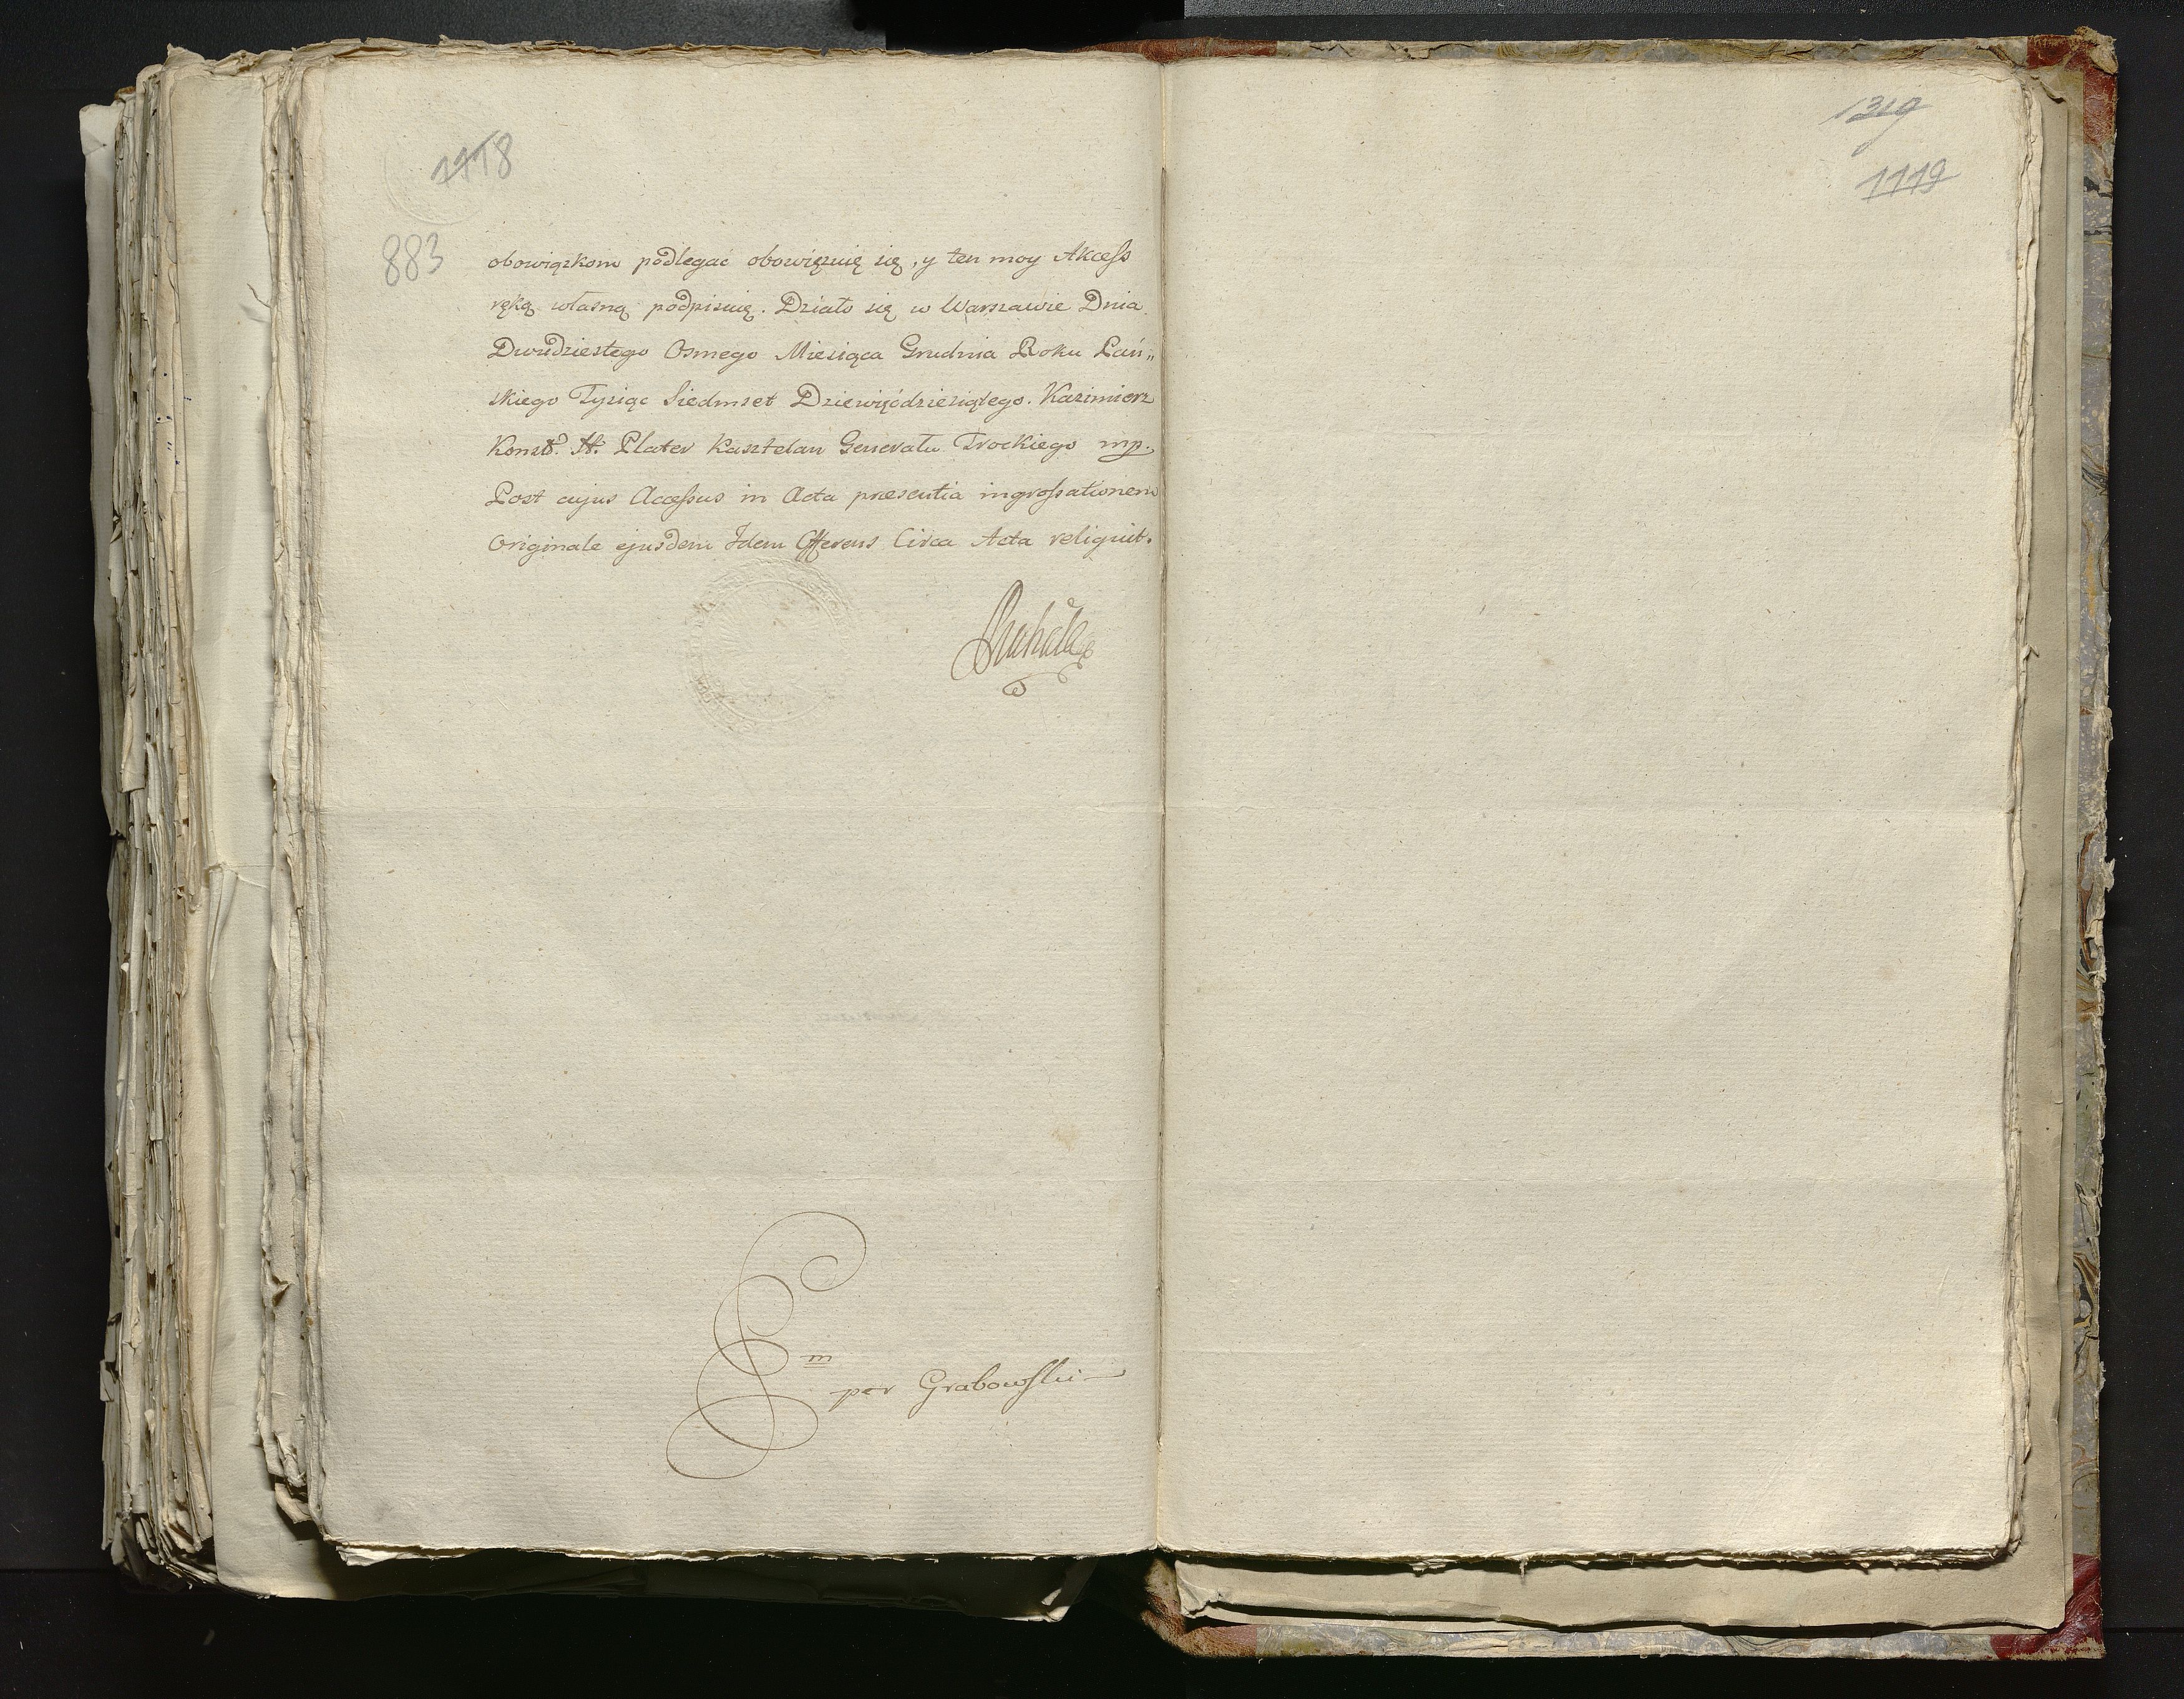 1118
883
obowiązkom podlegać obowięzuię się, y ten moy Akcess
ręką własną podpisuię. Działo się w Warszawie Dnia
Dwudziestego Osmego Miesiąca Grudnia Roku Pań„
skiego Tysiąc Siedmset Dziewięćdziesiątego. Kazimierz
Konst. H. Plater Kasztelan Generału Trockiego mp.
Post cujus Accessus in Acta præsentia ingrossationem
Originale ejusdem Idem Offerens Circa Acta reliquit.
m
per Grabowski
1319
1119